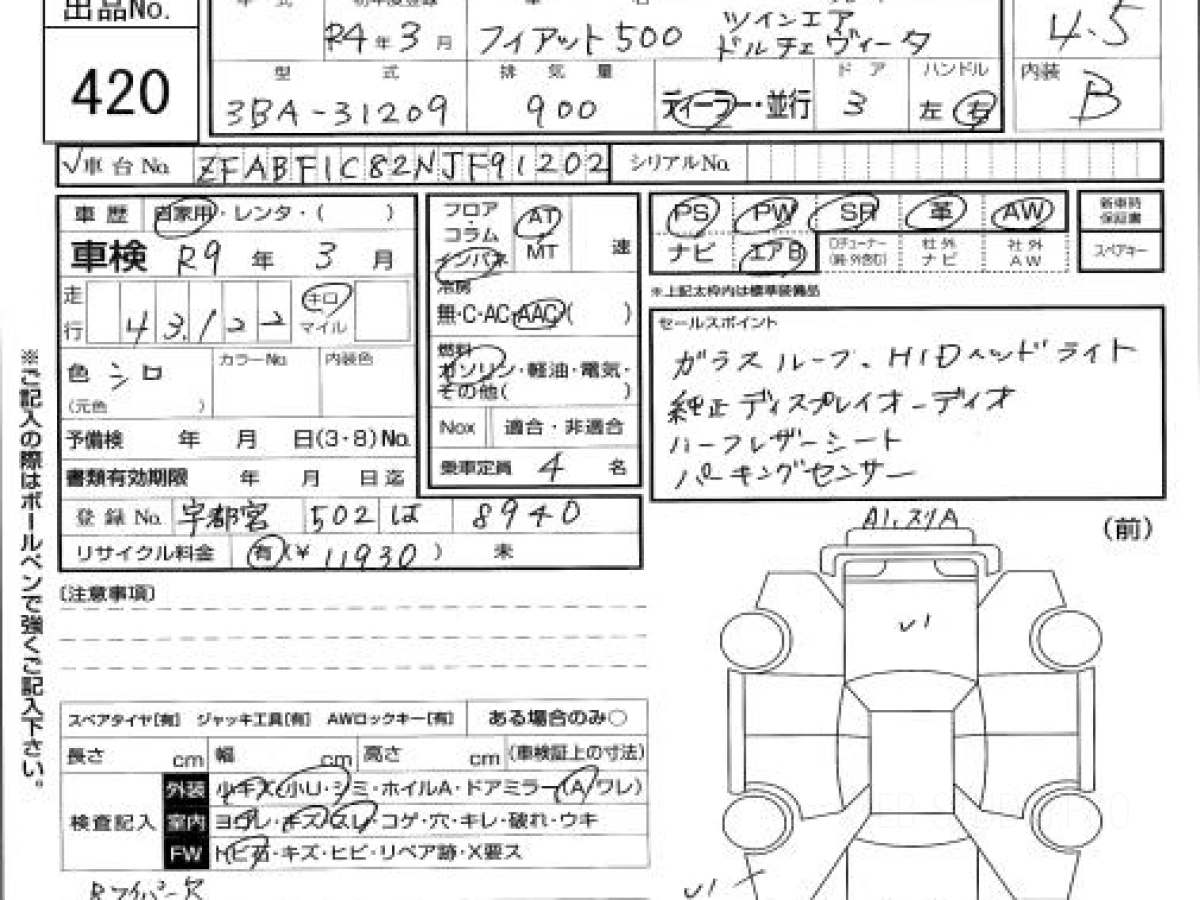 出品No.
420
R4年3月
フィアット500
ツインエア
ドルチェヴィータ
4.5
型式
排気量
ドア
ハンドル
内装
3BA-31209
900
ディーラー・並行
3
左 右
B
車台No. ZFABF1C82NJF91202
シリアルNo.
車歴 自家用・レンタ・( )
車検 R9年3月
走行 43,122
キロ
マイル
色 シロ
カラーNo.
内装色
(元色 )
予備検 年 月 日(3・8)No.
書類有効期限 年 月 日迄
登録No. 宇都宮 502 は 8940
リサイクル料金 有(¥ 11930 ) 未
フロア
・
コラム
・
インパネ
AT
MT
速
冷房
無・C・AC・AAC( )
燃料
ガソリン・軽油・電気・
その他( )
Nox 適合・非適合
乗車定員 4 名
PS PW SR 革 AW
ナビ エアB
社外
ナビ
社外
AW
新車時
保証書
スペアキー
※上記太枠内は標準装備品
セールスポイント
ガラスルーフ、HIDヘッドライト
純正ディスプレイオーディオ
ハーフレザーシート
パーキングセンサー
※ご記入の際はボールペンで強くご記入下さい。
〔注意事項〕
スペアタイヤ[有] ジャッキ工具[有] AWロックキー[有] ある場合のみ○
長さ cm 幅 cm 高さ cm (車検証上の寸法)
検査記入
外装 小キズ・小U・シミ・ホイルA・ドアミラー(A/ワレ)
室内 ヨゴレ・キズ・スレ・コゲ・穴・キレ・破れ・ウキ
FW トビ石・キズ・ヒビ・リペア跡・X要ス
Rワイパー欠
A1,スリA
(前)
U1
U1